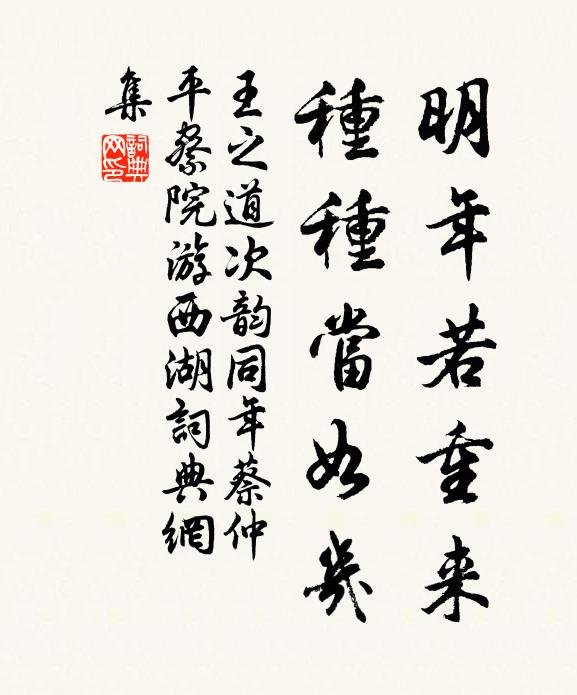 明年若重来
種種當如幾
王之道次韵同年蔡仲
平察院游西湖詞典網
集
詞典
网印